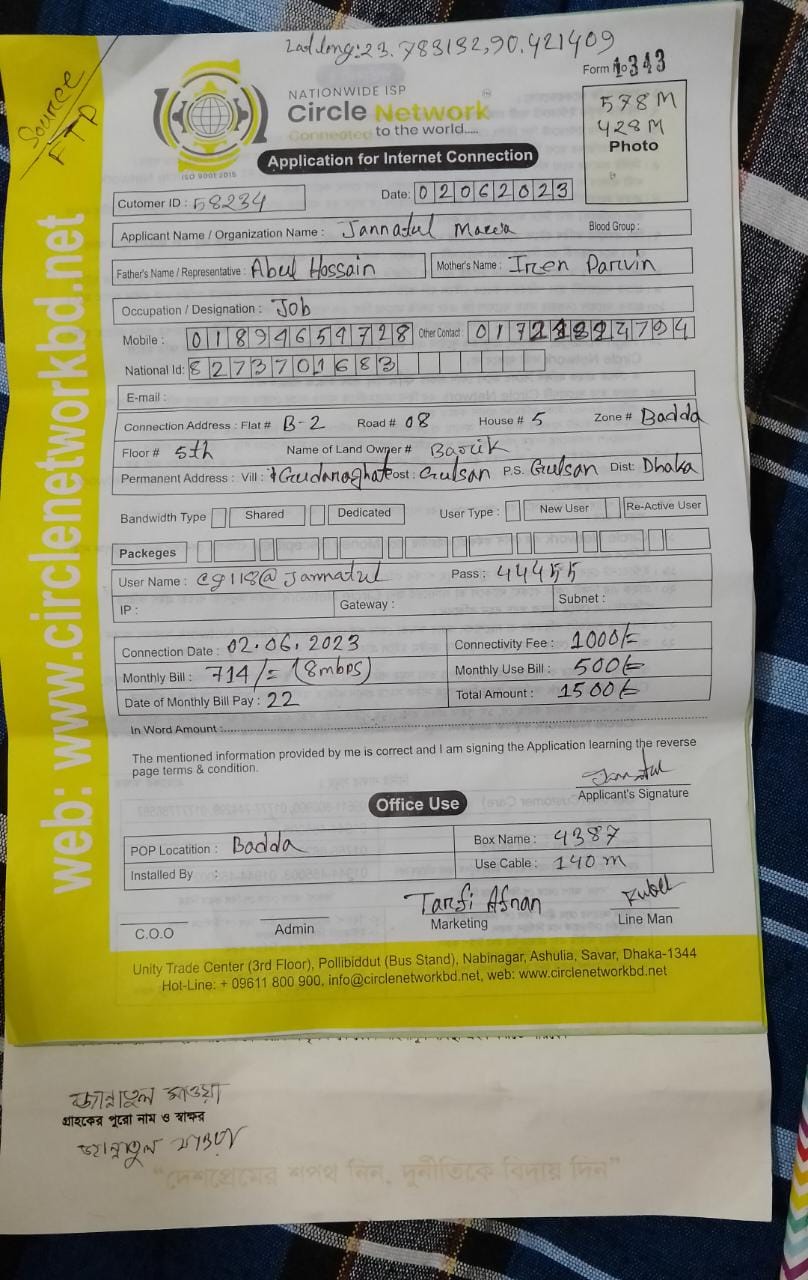 Latlong:23.783132,90.421409
Source
FTP
Form No 1343
NATIONWIDE ISP
Circle Network
Connected to the world.....
ISO 9001:2015
578 M
428 M
Photo
Application for Internet Connection
Cutomer ID : 58234
Date: 02062023
Applicant Name / Organization Name : Jannatul Mawa Blood Group :
Father's Name / Representative : Abul Hossain Mother's Name : Iren Parvin
Occupation / Designation : Job
Mobile : 01894659728 Other Contact :
National Id: 8273701683
E-mail :
Connection Address : Flat # B-2 Road # 08 House # 5 Zone # Badda
Floor # 5th Name of Land Owner #
Permanent Address : Vill : Gudaraghat Post : Gulsan P.S. Gulsan Dist: Dhaka
Bandwidth Type Shared Dedicated User Type : New User Re-Active User
Packeges
User Name : cg118@Jannatul Pass : 44455
IP : Gateway : Subnet :
Connection Date : 02.06.2023 Connectivity Fee : 1000/=
Monthly Bill : 714/= (8mbps) Monthly Use Bill : 500/=
Date of Monthly Bill Pay : 22 Total Amount : 1500/=
In Word Amount :
The mentioned information provided by me is correct and I am signing the Application learning the reverse
page terms & condition.
Jannatul
Applicant's Signature
Office Use
POP Locatition : Badda Box Name : 4387
Installed By : Use Cable : 140 m
Tarfi Afnan Rubel
C.O.O Admin Marketing Line Man
Unity Trade Center (3rd Floor), Pollibiddut (Bus Stand), Nabinagar, Ashulia, Savar, Dhaka-1344
Hot-Line: + 09611 800 900, info@circlenetworkbd.net, web: www.circlenetworkbd.net
web: www.circlenetworkbd.net
জান্নাতুল মাওয়া
গ্রাহকের পুরো নাম ও স্বাক্ষর
জান্নাতুল মাওয়া
“দেশপ্রেমের শপথ নিন, দুর্নীতিকে বিদায় দিন”